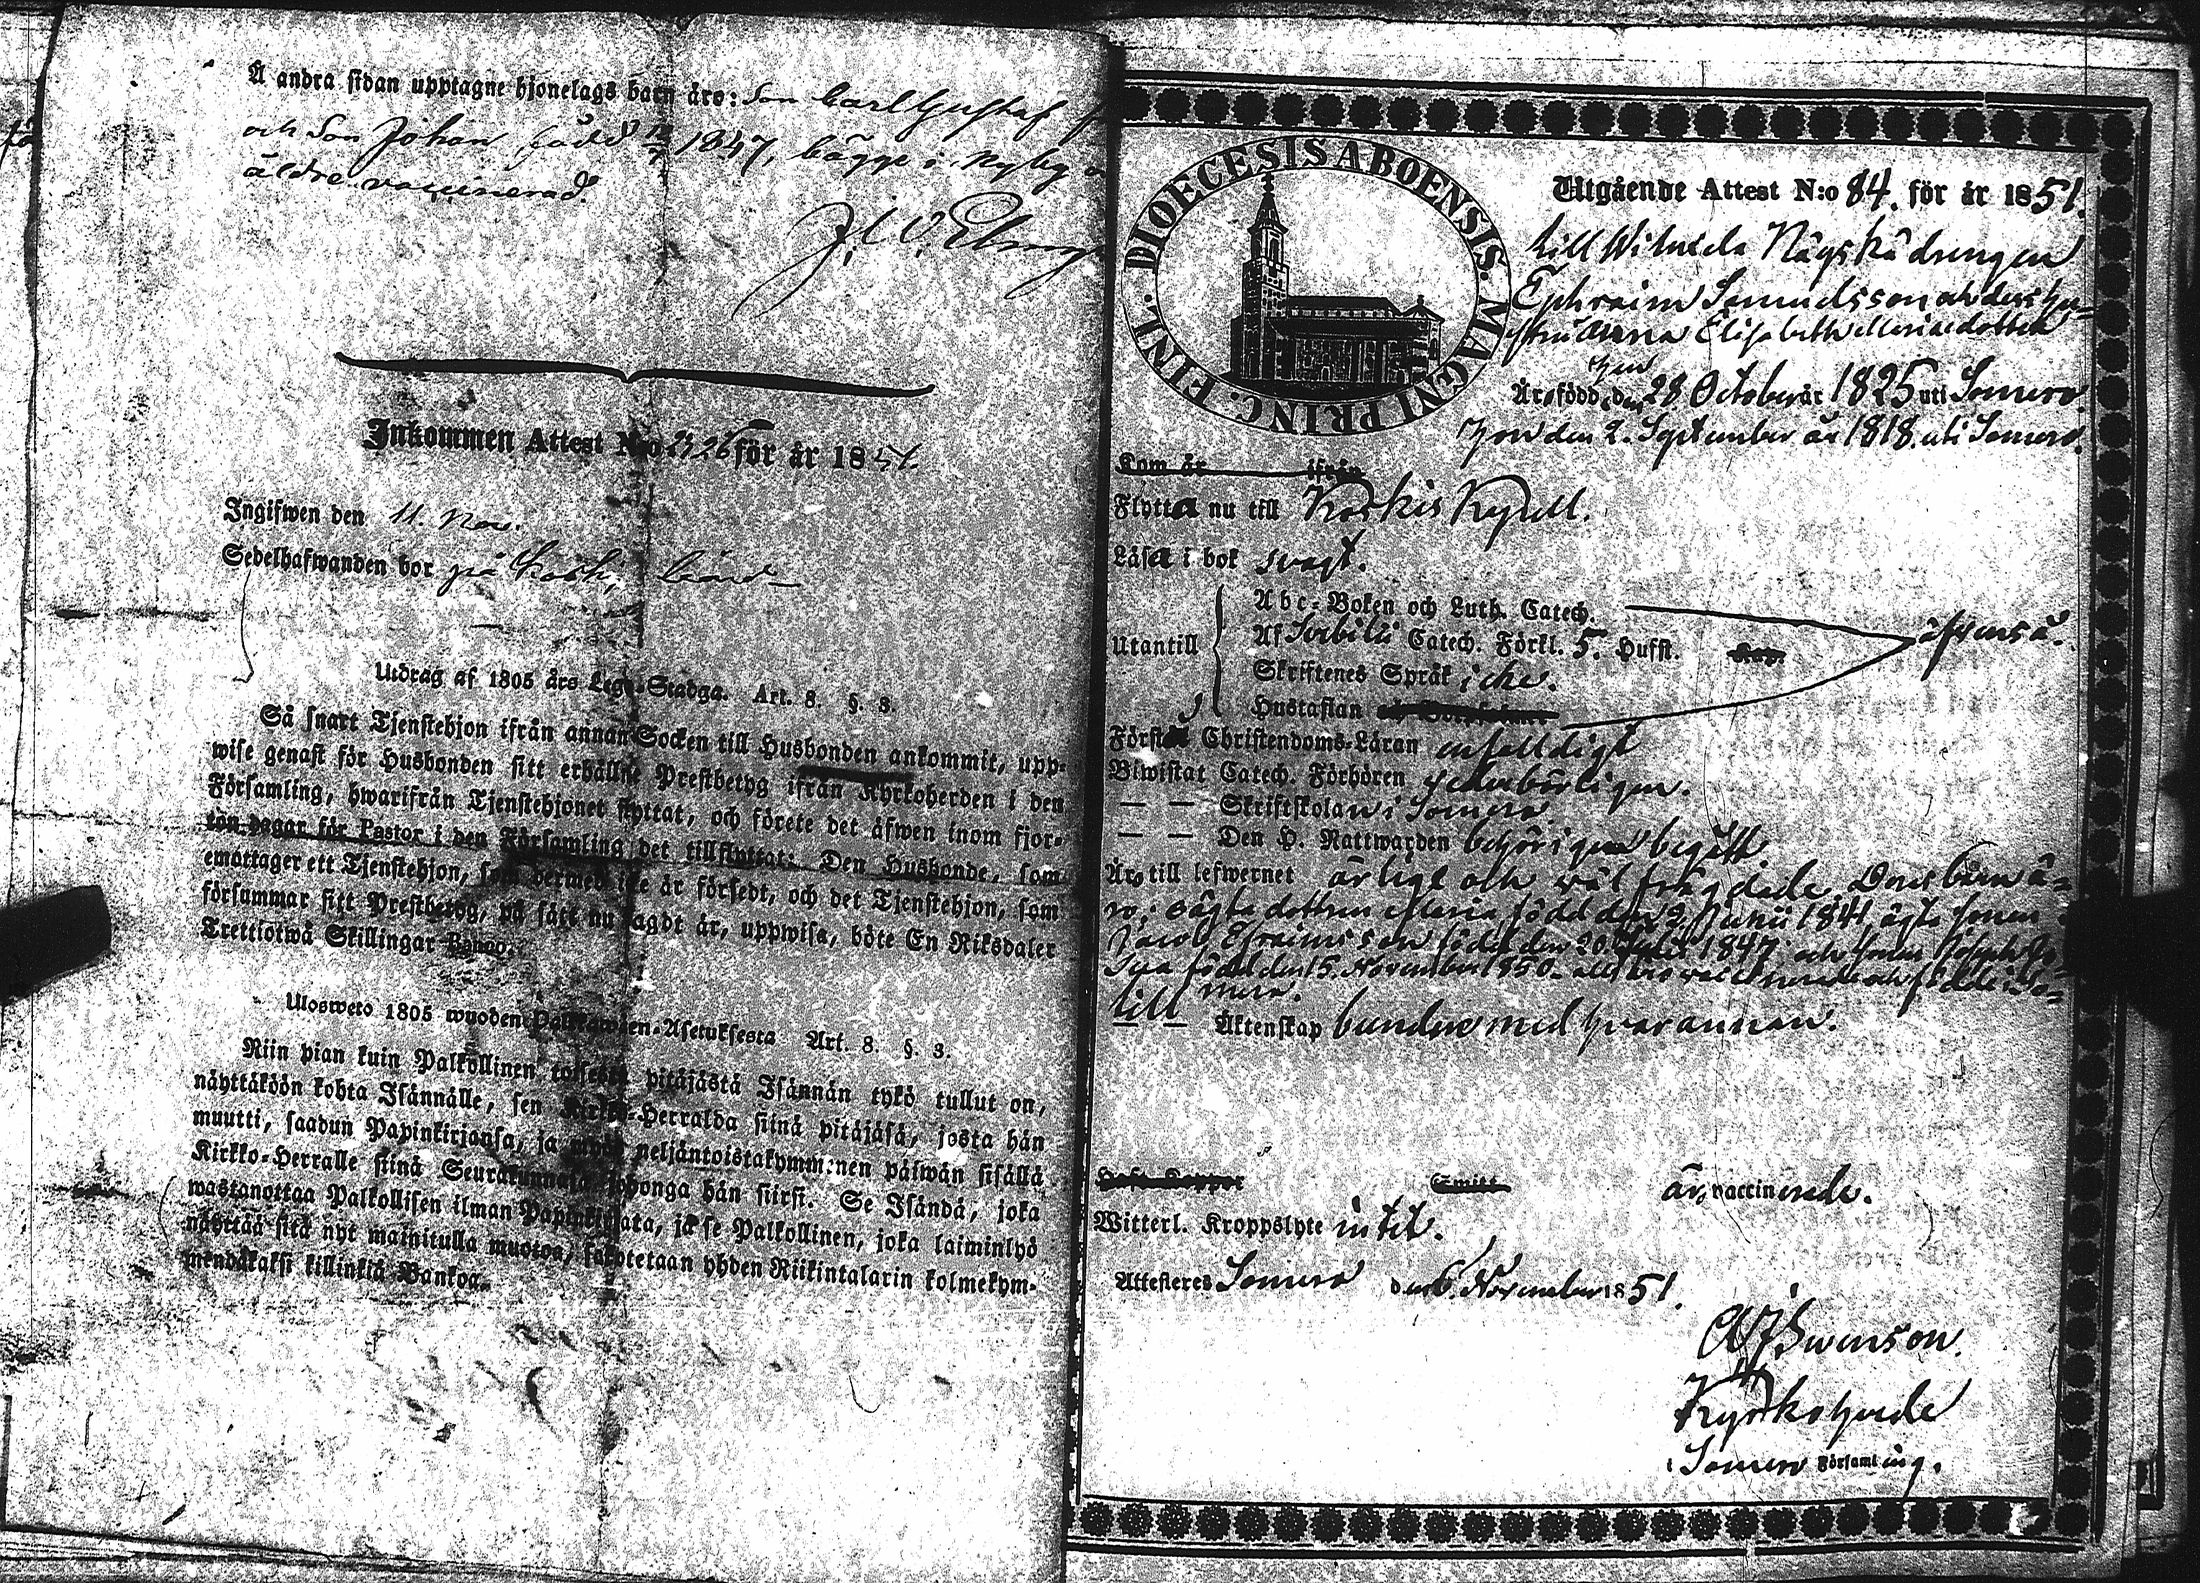 Å andra sidan upptagne hjonelags barn äro: Son Carl Gustaf
och Son Johan född 1847, bägge i Nyby
äldre vaccinerad.
Inkommen Attest N:o 26 för år 1851.
Ingifwen den 11. Nov.
Sedelhafwanden bor på Koskis
Utdrag af 1805 års Lego-Stadga. Art. 8. §. 3.
Så snart Tjenstehjon ifrån annan Socken till Husbonden ankommit, upp-
wise genast för Husbonden sitt erhållne Prestbetyg ifrån Kyrkoherden i den
Församling, hwarifrån Tjenstehjonet flyttat, och förete det äfwen inom fjor-
ton dagar för Pastor i den Församling det tillflyttat: Den Husbonde, som
emottager ett Tjenstehjon, som dermed icke är försedt, och det Tjenstehjon, som
försummar sitt Prestbetyg, på sätt nu sagdt är, uppwisa, böte En Riksdaler
Trettiotwå Skillingar Banco.
Ulosweto 1805 wuoden Palkkawäen-Asetuksesta Art. 8. §. 3.
Niin pian kuin Palkollinen toisesta pitäjästä Isännän tykö tullut on,
näyttäköön kohta Isännälle, sen Kirkko-Herralda siinä pitäjäsä, josta hän
muutti, saadun Papinkirjansa, ja myös neljäntoistakymmenen päiwän sisällä
Kirkko-Herralle siinä Seurakunnasa johonga hän siirsi. Se Isändä, joka
wastanottaa Palkollisen ilman Papinkirjata, ja se Palkollinen, joka laiminlyö
näyttää sitä nyt mainitulla muotoa, sakotetaan yhden Riikintalarin kolmekym-
mendäkaksi killinkiä Bankoa.
FINL. DIOECESIS ABOENSIS. MAGNI PRINC.
Utgående Attest N:o 84. för år 1851.
till Wiluksela Någskådrengen
Ephraim Samuelsson och dess hu-
stru Anna Elisabeth Mariædotter
han
Äro födde, den 28 October år 1825 uti Somero.
hon den 2. September år 1818. uti Somero.
Kom år ifrån
Flytta nu till Koskis Kapell.
Läsa i bok svagt.
Utantill
Abc-Boken och Luth. Catech.
Af Svebilii Catech. Förkl. 5. Hufst. Kap.
Skriftenes Språk icke.
Hustaflan
äfvenså.
Förstå Christendoms-Läran enfaldigt
Biwistat Catech. Förhören vederbörligen.
— — Skriftskolan i Somero.
— — Den H. Nattwarden behörigen begått
Äro till lefwernet ärlige och väl frägdade. Deras barn ä-
ro: oägta dottren Maria född den 2 Junii 1841, ägta sonen
Jacob Efraimsson född den 20. Julii 1847 och sonen Joseph
född den 15. November 1850. alla tre vaccinerade och födde i So-
mero.
till Äktenskap bundne med hvarannan.
Haft Koppor Smitt äro vaccinerade.
Witterl. Kroppslyte intet.
Attesteres Somero den 6. November 1851.
Swenson.
Kyrkoherde
i Somero Församling.